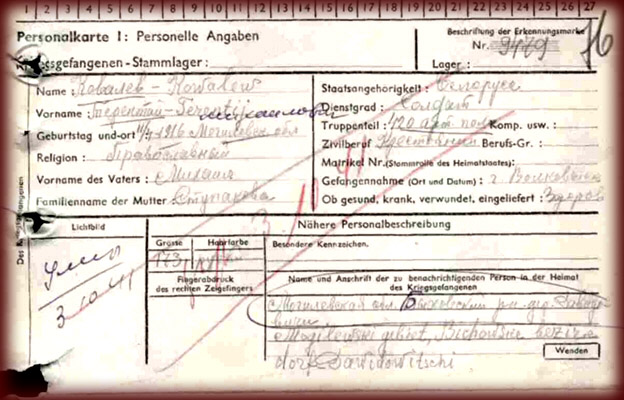 1 2 3 4 5 6 7 8 9 10 11 12 13 14 15 16 17 18 19 20 21 22 23 24 25 26 27
Personalkarte I: Personelle Angaben
Kriegsgefangenen-Stammlager:
Beschriftung der Erkennungsmarke
Nr. 9479
Lager:
Name Ковалев - Kowalew
Vorname Терентий - Terentij Михайлович
Geburtstag und -ort 1916 Могилевск обл
Religion: Православный
Vorname des Vaters: Михаил
Familienname der Mutter: Ступакова
Staatsangehörigkeit: белорусс
Dienstgrad: Солдат
Truppenteil: 420 арт пол Komp. usw.:
Zivilberuf: Крестьянин Berufs-Gr.:
Matrikel Nr. (Stammrolle des Heimatstaates):
Gefangennahme (Ort und Datum): г. Волковыск
Ob gesund, krank, verwundet, eingeliefert: Здоров
Des Kriegsgefangenen
Lichtbild
умер
3 10 41
Nähere Personalbeschreibung
Grösse
Haarfarbe
Besondere Kennzeichen.
173
Fingerabdruck
des rechten Zeigefingers
Name und Anschrift der zu benachrichtigenden Person in der Heimat
des Kriegsgefangenen
Могилевская обл. Быховский рн. дер. Давидо
вичи
Mogilewski gebiet, Bichowski bezirk
dorf Dawidowitschi
Wenden
3 10 41